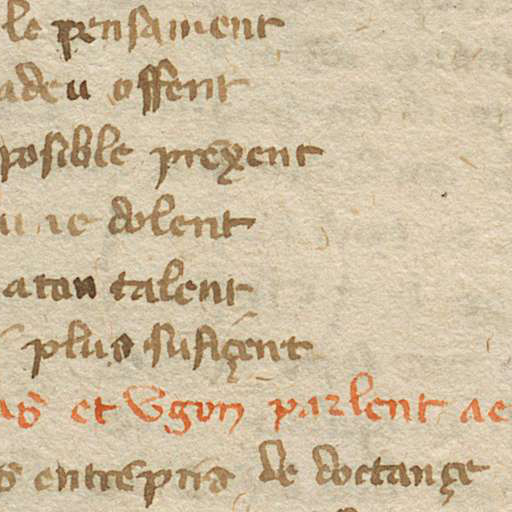 le pensament
adeu offent
posible preçent
ie dolent
aton talent
plus sufiçent
et Vgon parlent ae
entrepris de doctançe